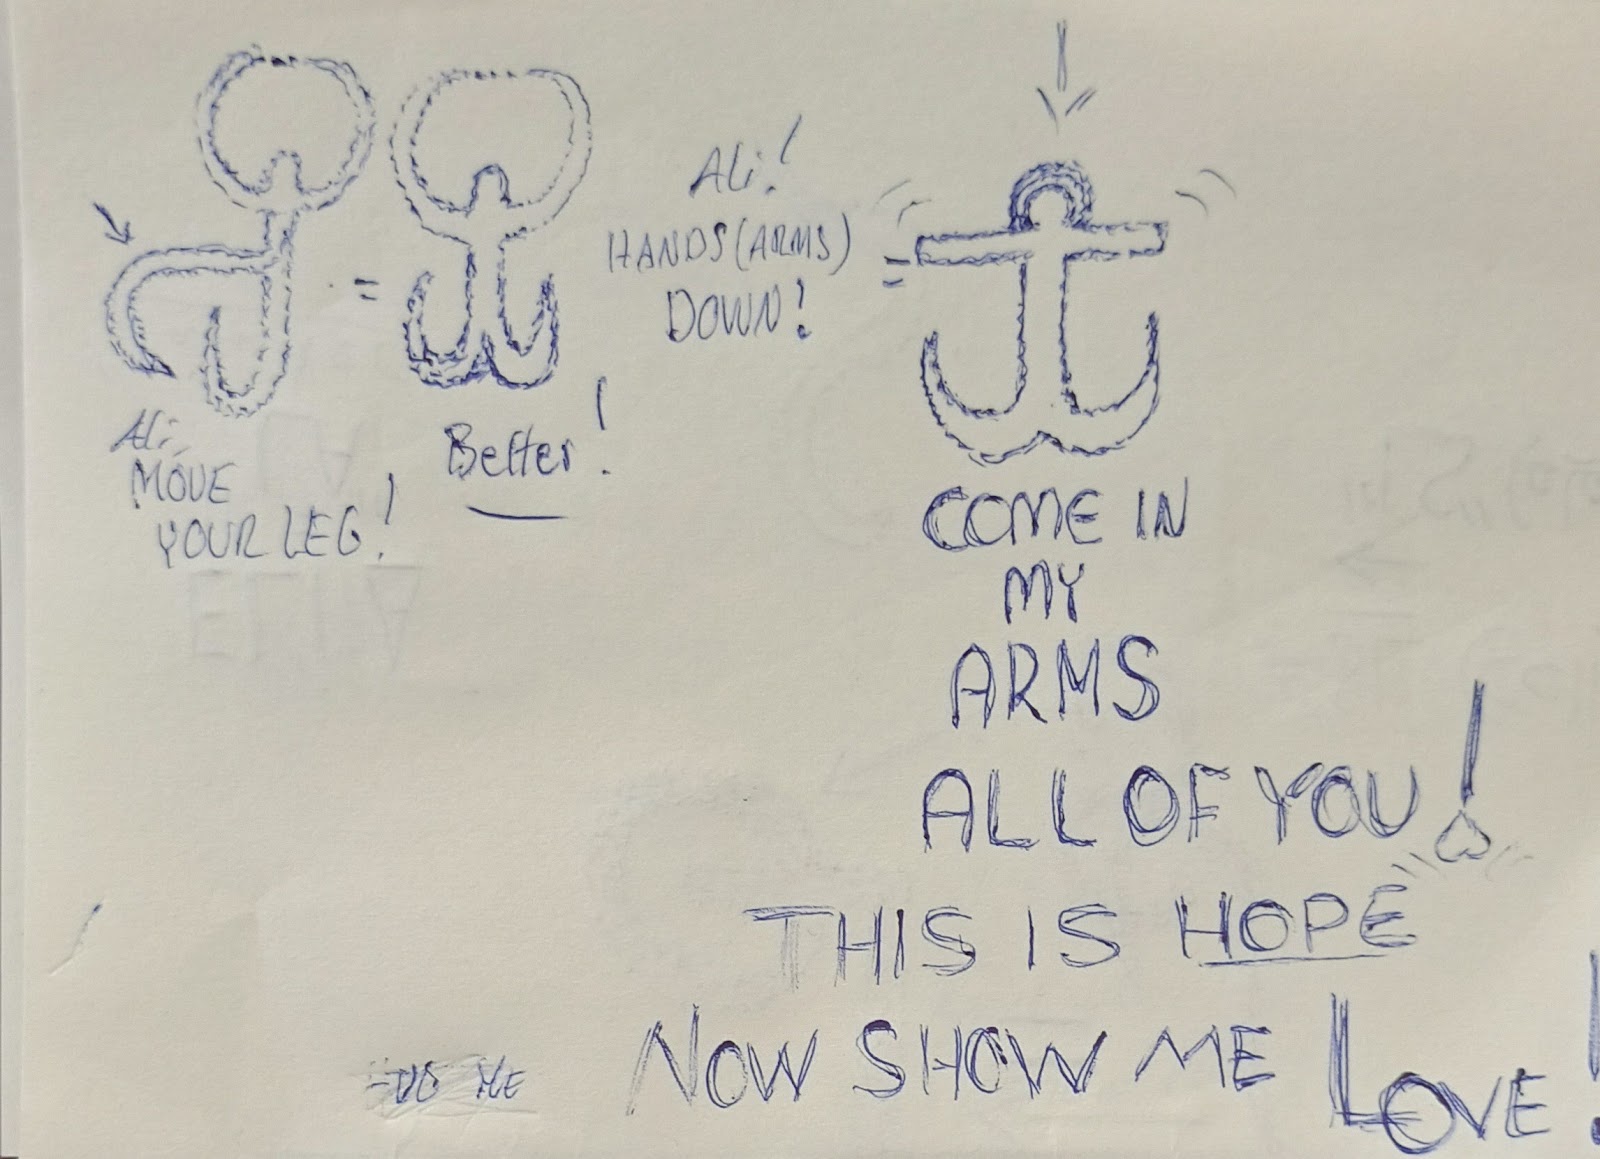 Ali,
MOVE
YOUR LEG!
=
Better!
Ali!
HANDS (ARMS)
DOWN!
=
COME IN
MY
ARMS
ALL OF YOU!
THIS IS HOPE
NOW SHOW ME LOVE!